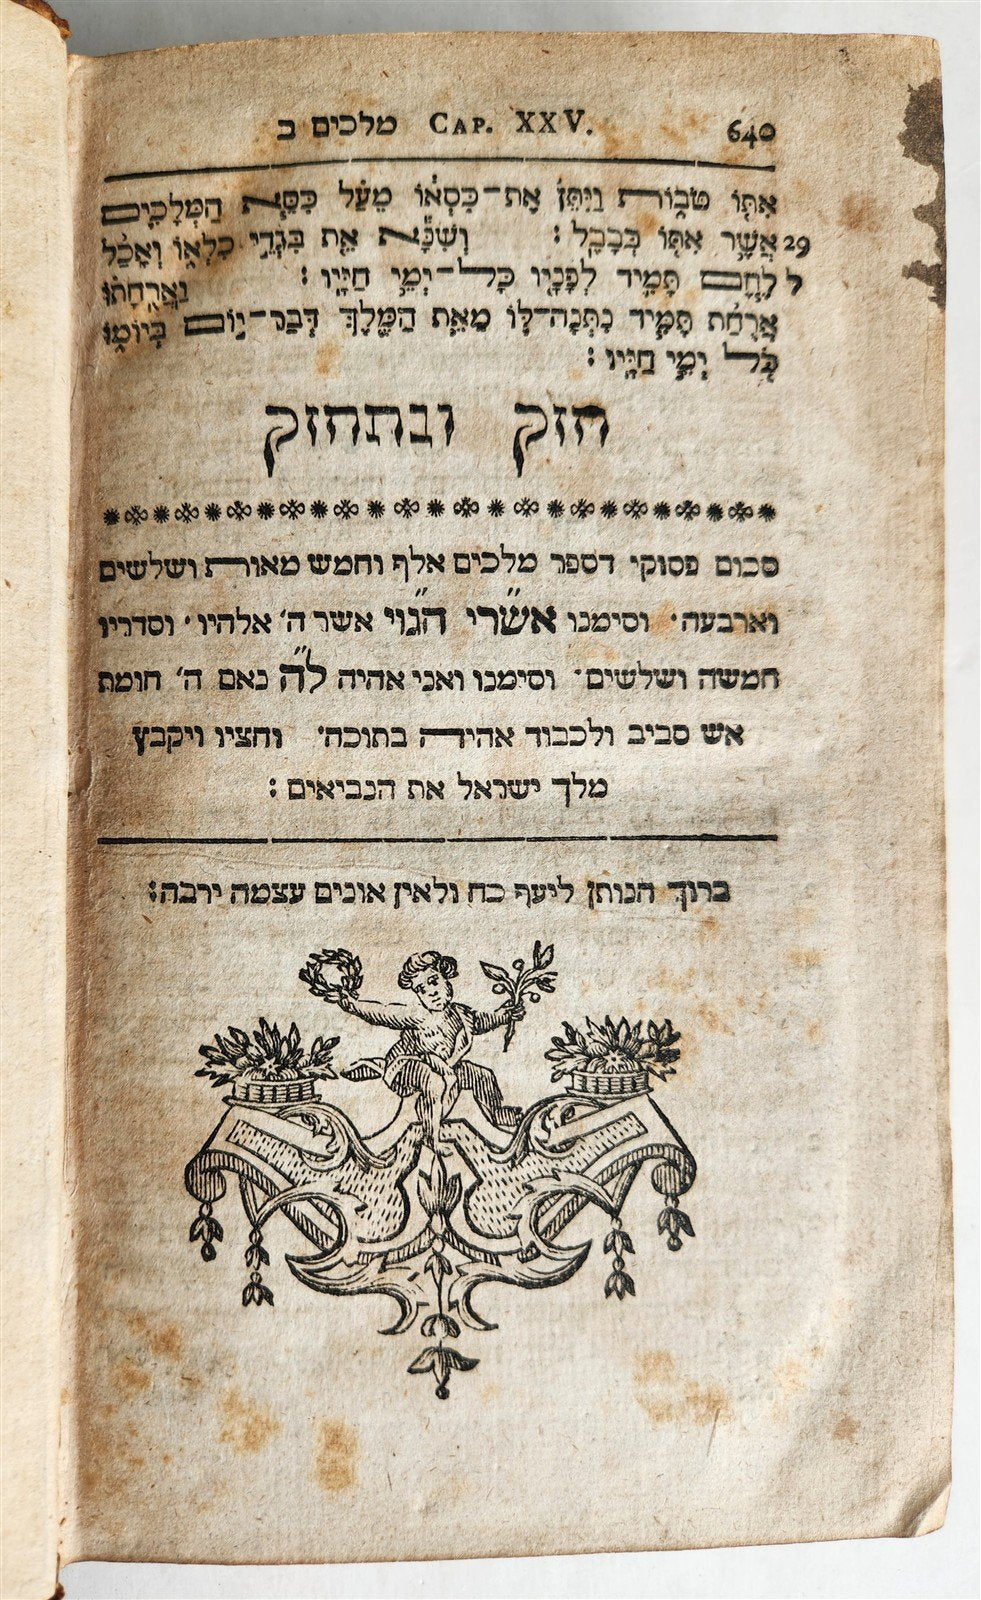 640 מלכים ב CAP. XXV.
אִתּ֖וֹ טֹב֑וֹת וַיִּתֵּן֙ אֶת־כִּסְא֔וֹ מֵעַ֗ל כִּסֵּ֧א הַמְּלָכִ֛ים
29 אֲשֶׁ֥ר אִתּ֖וֹ בְּבָבֶֽל : וְשִׁנָּ֕א אֵ֖ת בִּגְדֵ֣י כִלְא֑וֹ וְאָכַ֨ל
ל לֶ֧חֶם תָּמִ֛יד לְפָנָ֖יו כָּל־יְמֵ֥י חַיָּֽיו : וַאֲרֻחָת֗וֹ
אֲרֻחַ֨ת תָּמִ֧יד נִתְּנָה־לּ֛וֹ מֵאֵ֥ת הַמֶּ֖לֶךְ דְּבַר־י֣וֹם בְּיוֹמ֑וֹ
כֹּ֖ל יְמֵ֥י חַיָּֽיו :
חזק ונתחזק
סכום פסוקי דספר מלכים אלף וחמש מאות ושלשים
וארבעה׳ וסימנו אש״רי הגו״י אשר ה׳ אלהיו׳ וסדריו
חמשה ושלשים׳ וסימנו ואני אהיה ל״ה נאם ה׳ חומת
אש סביב ולכבוד אהיה בתוכה׳ וחציו ויקבץ
מלך ישראל את הנביאים :
ברוך הנותן ליעף כח ולאין אונים עצמה ירבה :